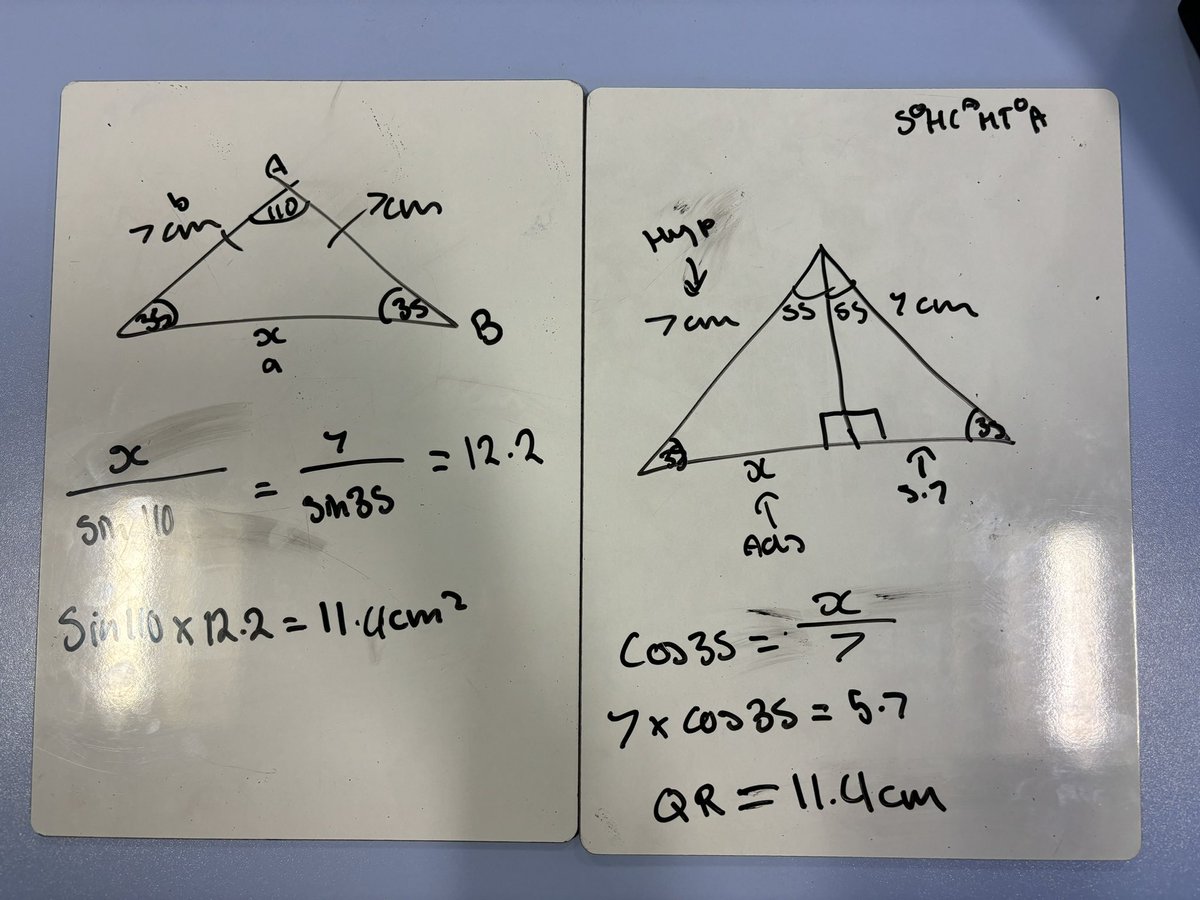 A
b
7cm 110 7cm
35 35 B
x
a
x/sin 110 = 7/sin35 = 12.2
Sin110 x 12.2 = 11.4cm²
SᴼHCᴬHTᴼA
Hyp
↓
7cm 55 55 7cm
35 35
x ↑
↑ 5.7
Adj
Cos35 = x/7
7 x cos35 = 5.7
QR = 11.4cm